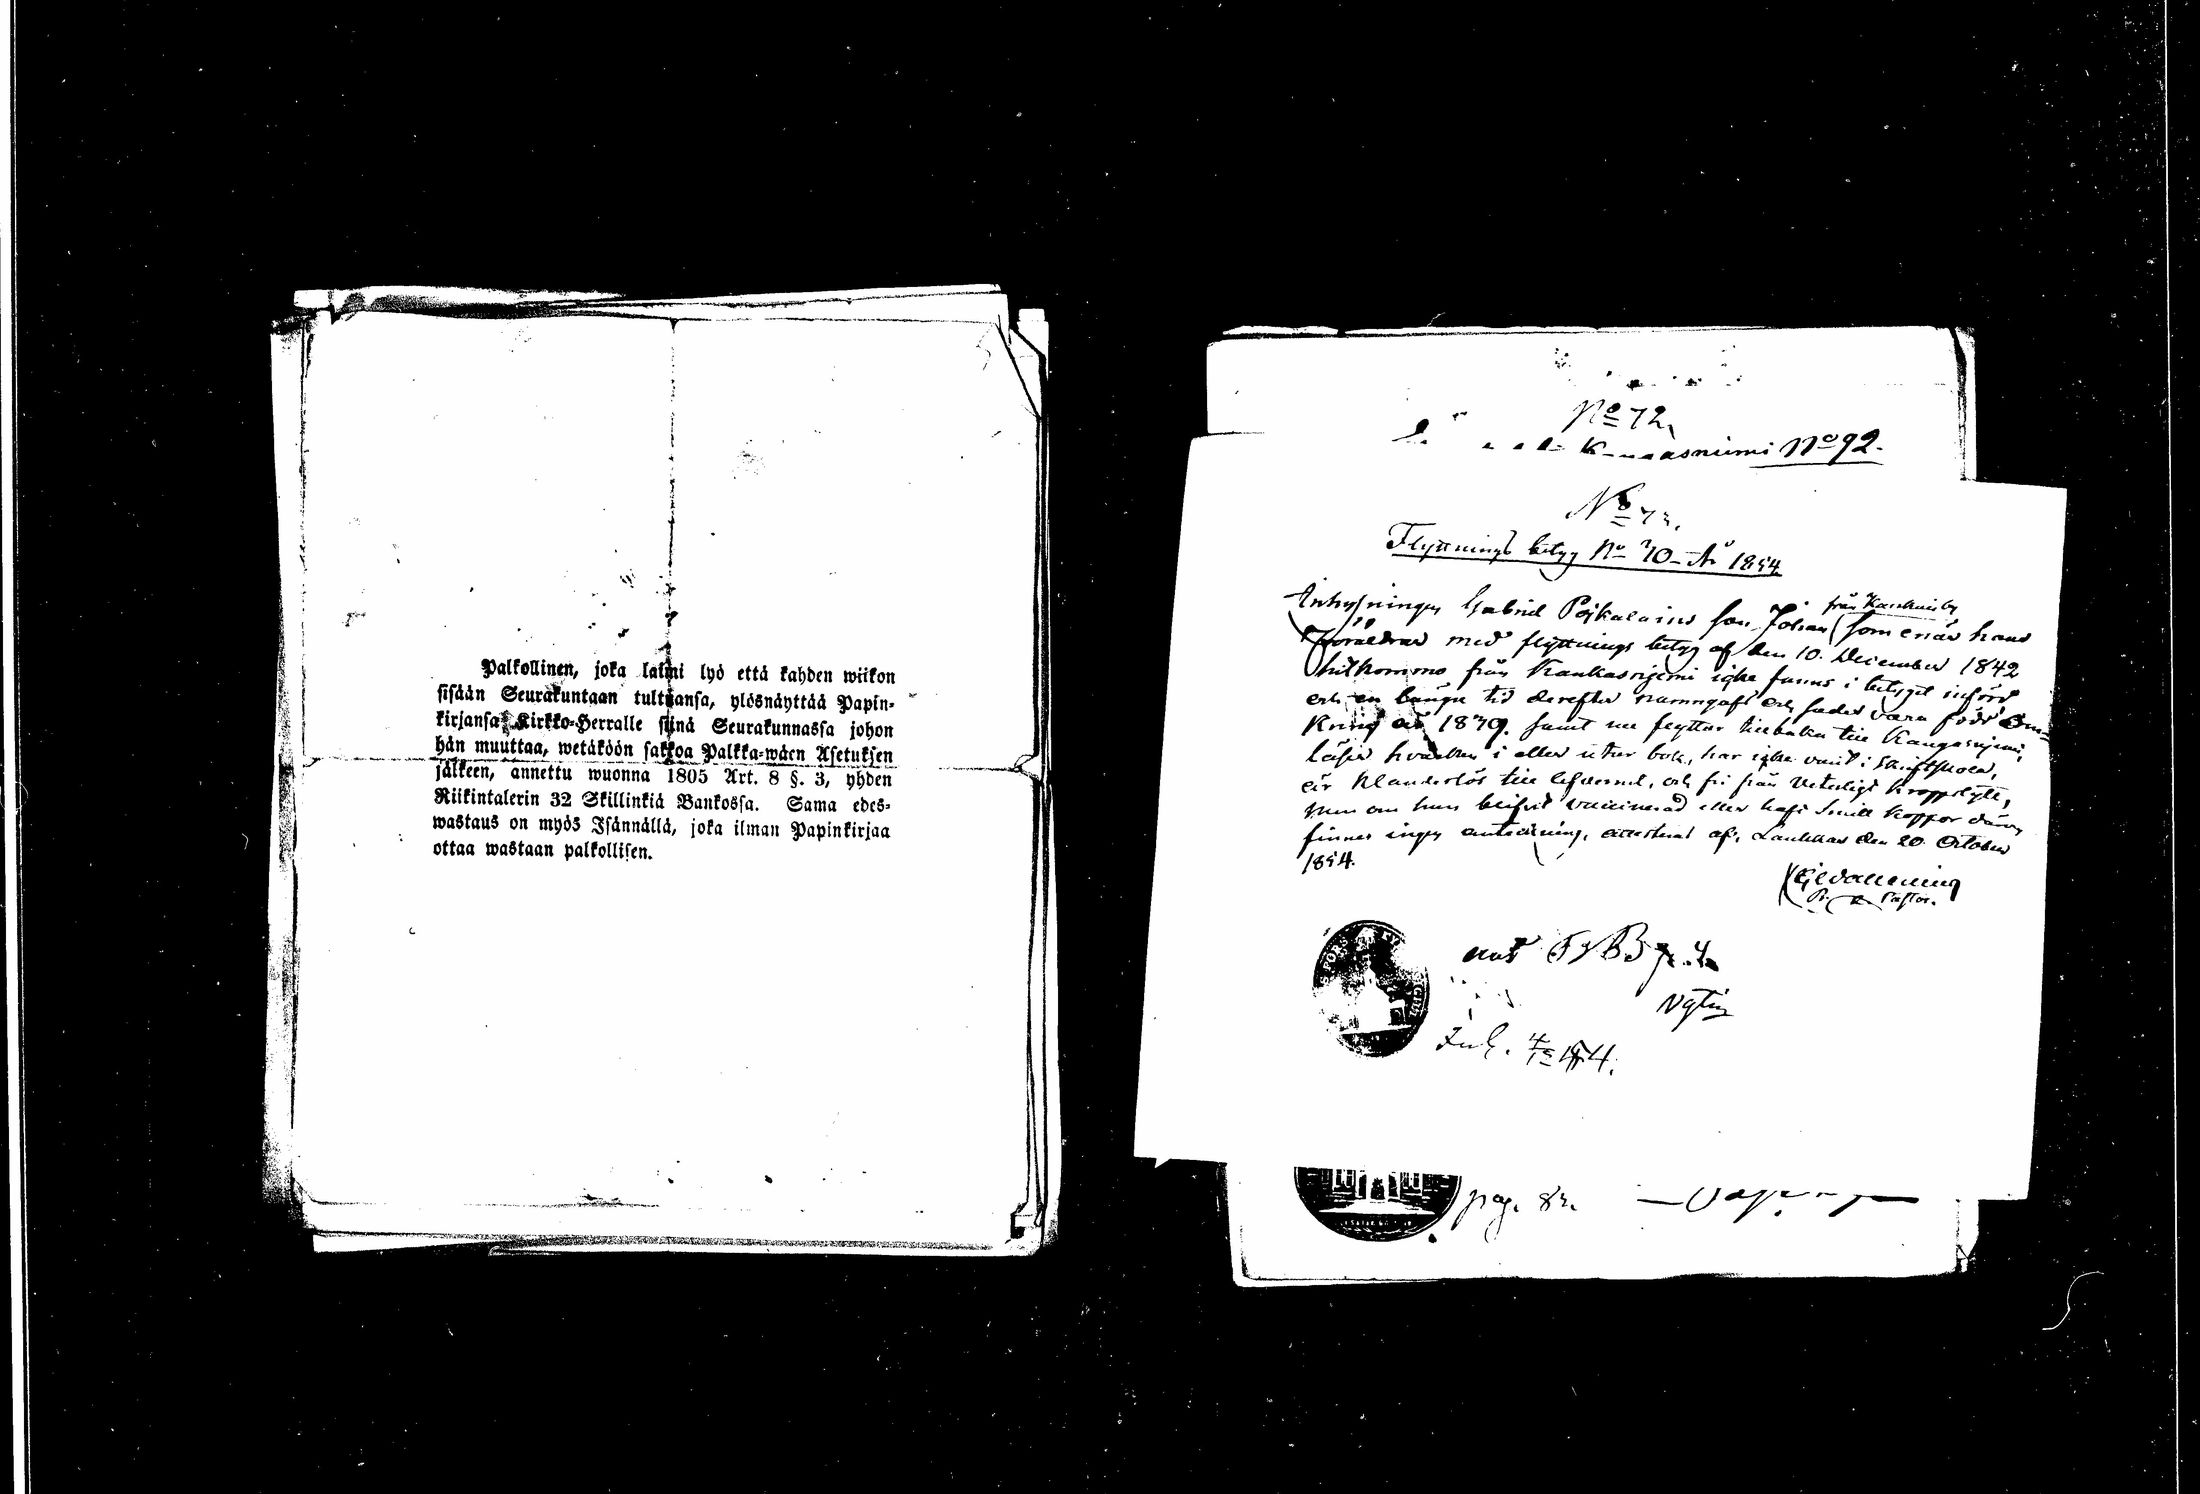 Palkollinen, joka laimi lyö että kahden wiikon
sisään Seurakuntaan tultuansa, ylösnäyttää Papin-
kirjansa Kirkko-Herralle siinä Seurakunnassa johon
hän muuttaa, wetäköön sakkoa Palkka-wäen Asetuksen
jälkeen, annettu wuonna 1805 Art. 8 §. 3, yhden
Riikintalerin 32 Skillinkiä Bankossa. Sama edes-
wastaus on myös Isännällä, joka ilman Papinkirjaa
ottaa wastaan palkollisen.
No 72.
No 92.
No 73.
Flyttnings betyg No 70 År 1854
från Kankais by
Inhysningen Gabriel Pojkalains son Johan som enär hans
föräldrar med flyttnings betyg af den 10. December 1842
hitkommo från Kankasnjemi icke fanns i betyget införd
och en längre tid derefter namngafs och sades vara född
Kring år 1839. samt nu flyttar tillbaka till Kangasnjemi,
läser hvarken i eller utur bok, har icke varit i Skriftskola,
är klanderlös till lefverne, och fri från veterligt kroppslyte,
men om han blifvit vaccinerad eller haft Smitt koppor därom
finnes ingen anteckning, attesteras af, Laukkas den 20 October
1854.
Pastor.
pag. 83.